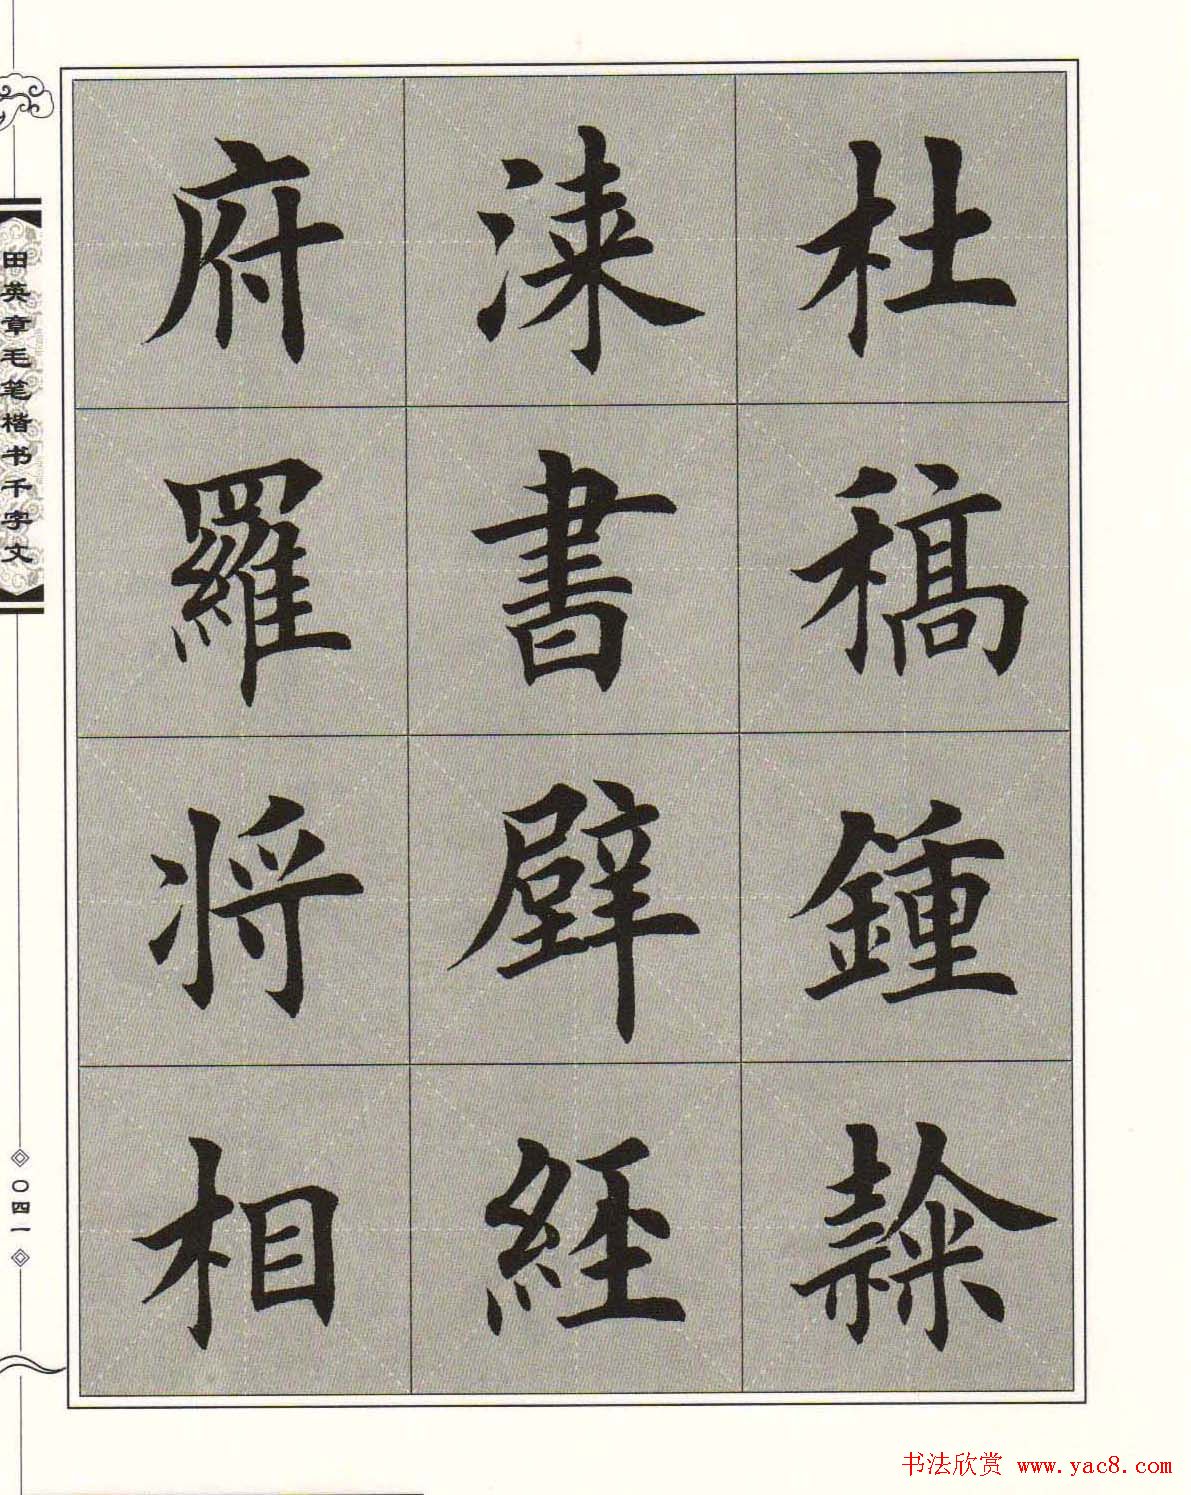 杜稿鍾隸
漆書壁經
府羅将相
田英章毛笔楷书千字文
〇四一
书法欣赏 www.yac8.com